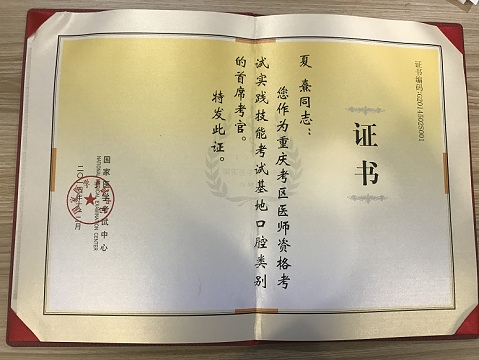 证书
证书编码G20145025001
夏熹同志：
您作为重庆考区医师资格考
试实践技能考试基地口腔类别
的首席考官。
特发此证。
国家医学考试中心
NATIONAL MEDICAL EXAMINATION CENTER